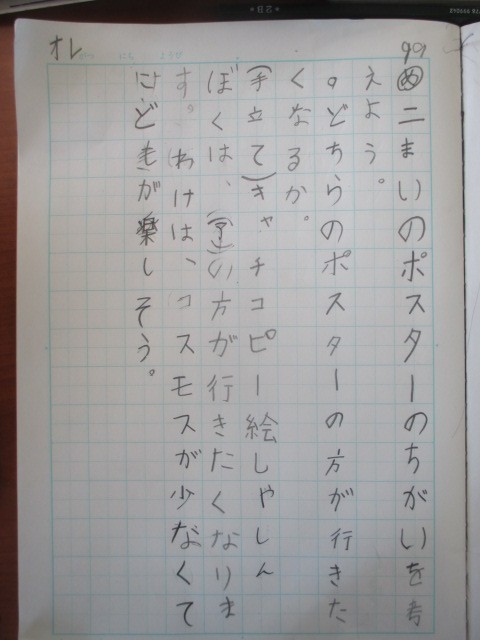 99
オレ
め二まいのポスターのちがいを考
えよう。
。どちらのポスターの方が行きた
くなるか。
(手立て)キャチコピー絵しゃしん
ぼくは、(い)の方が行きたくなりま
す。わけは、コスモスが少なくて
にどきが楽しそう。